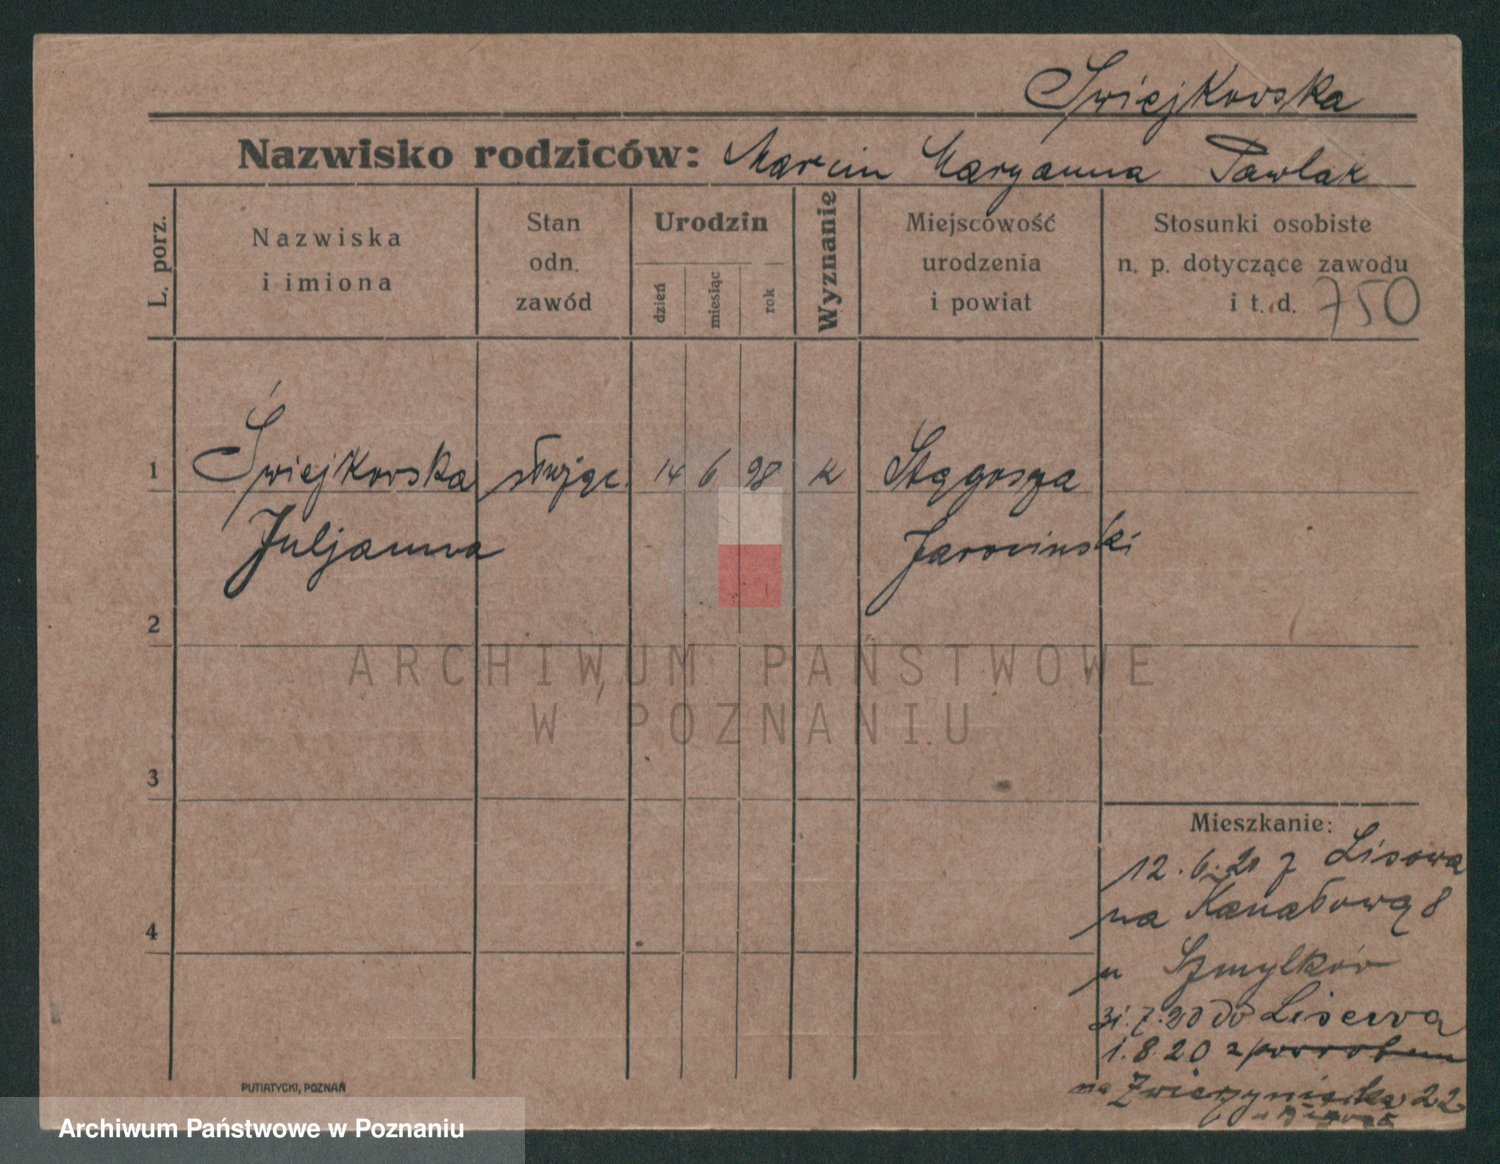 Świejkowska
Nazwisko rodziców: Marcin Maryanna Pawlak
L. porz.
Nazwiska
i imiona
Stan
odn.
zawód
Urodzin
dzień
miesiąc
rok
Wyznanie
Miejscowość
urodzenia
i powiat
Stosunki osobiste
n. p. dotyczące zawodu
i t. d. 750
1 Świejkowska służąc. 14 6 98 k Stęgosza
Juljanna Jarocinski
2
ARCHIWUM PAŃSTWOWE
W POZNANIU
3
4
Mieszkanie:
12.6.20 z Lisowa
na Kanałową 8
u Szmylków
31.7.20 do Lisewa
1.8.20 z
na Zwierzyniecką 22
PUTIATYCKI, POZNAŃ
Archiwum Państwowe w Poznaniu